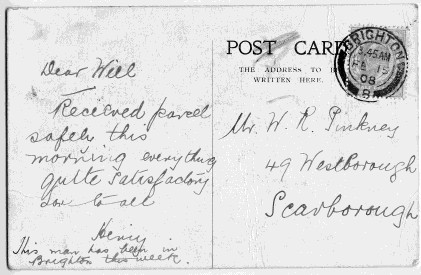 Dear Will
Received parcel
safely this
morning everything
quite satisfactory
love to all
Henry
This man has been in
Brighton this week.
POST CARD
THE ADDRESS TO BE
WRITTEN HERE.
BRIGHTON
8.45AM
FE 15
08
Mr. W. R. Pinkney
49 Westborough
Scarborough